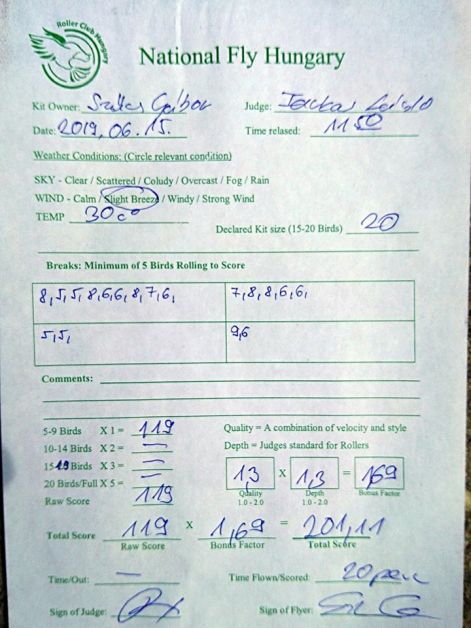 Roller Club Hungary
National Fly Hungary
Kit Owner: Szűcs Gábor Judge:
Date: 2019.06.15. Time relased: 1150
Weather Conditions: (Circle relevant condition)
SKY - Clear / Scattered / Coludy / Overcast / Fog / Rain
WIND - Calm / Slight Breeze / Windy / Strong Wind
TEMP 30 c°
Declared Kit size (15-20 Birds) 20
Breaks: Minimum of 5 Birds Rolling to Score
8,5,5,8,6,6,8,7,6, 7,8,8,6,6,
5,5, 9,6
Comments:
5-9 Birds X 1 = 119 Quality = A combination of velocity and style
10-14 Birds X 2 = — Depth = Judges standard for Rollers
15-19 Birds X 3 = — 1,3 X 1,3 = 169
20 Birds/Full X 5 = — Quality Depth Bonus Factor
Raw Score 119 1.0 - 2.0 1.0 - 2.0
Total Score 119 X 1,69 = 201,11
Raw Score Bonds Factor Total Score
Time/Out: — Time Flown/Scored: 20 perc
Sign of Judge: Sign of Flyer: